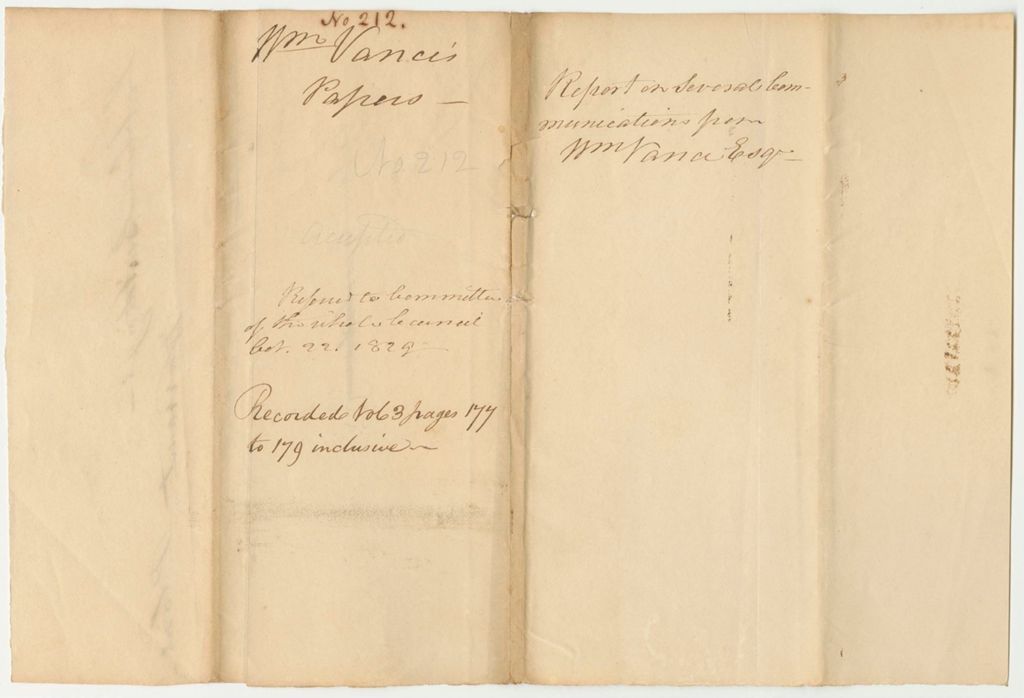 No 212.
Wm Vance's
Papers —
No 212
accepted
Referred to Committee
of the whole Council
Oct. 22. 1829 —
Recorded Vol 3 pages 177
to 179 inclusive —
Report on Several Com-
munications from
Wm Vance Esqr —